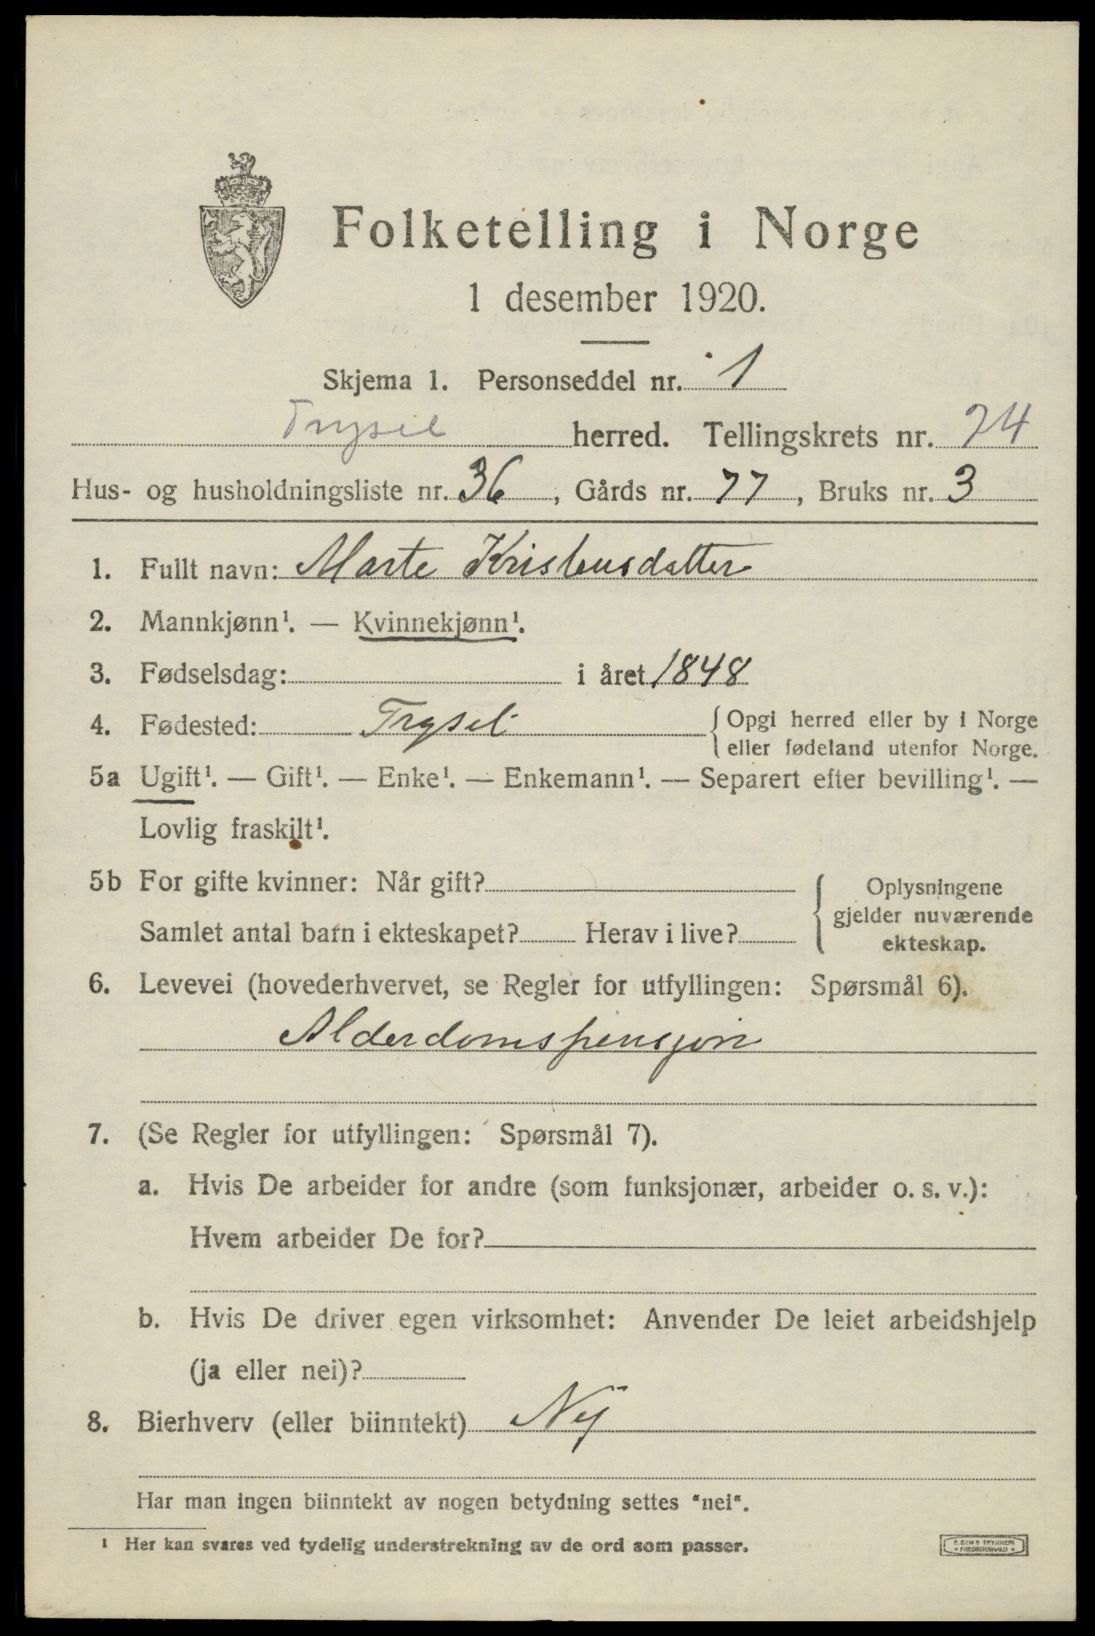 Folketelling i Norge
1 desember 1920.
Skjema 1. Personseddel nr. 1
Trysil herred. Tellingskrets nr. 24
Hus- og husholdningsliste nr. 36, Gårds nr. 77, Bruks nr. 3
1. Fullt navn: Marte Kristensdatter
2. Mannkjønn¹. — Kvinnekjønn¹.
3. Fødselsdag: i året 1848
4. Fødested: Trysil { Opgi herred eller by i Norge
eller fødeland utenfor Norge.
5a Ugift¹. — Gift¹. — Enke¹. — Enkemann¹. — Separert efter bevilling¹. —
Lovlig fraskilt¹.
5b For gifte kvinner: Når gift?
Samlet antal barn i ekteskapet? Herav i live?
{ Oplysningene
gjelder nuværende
ekteskap.
6. Levevei (hovederhvervet, se Regler for utfyllingen: Spørsmål 6).
Alderdomspensjon
7. (Se Regler for utfyllingen: Spørsmål 7).
a. Hvis De arbeider for andre (som funksjonær, arbeider o. s. v.):
Hvem arbeider De for?
b. Hvis De driver egen virksomhet: Anvender De leiet arbeidshjelp
(ja eller nei)?
8. Bierhverv (eller biinntekt) Nej
Har man ingen biinntekt av nogen betydning settes "nei".
¹ Her kan svares ved tydelig understrekning av de ord som passer.